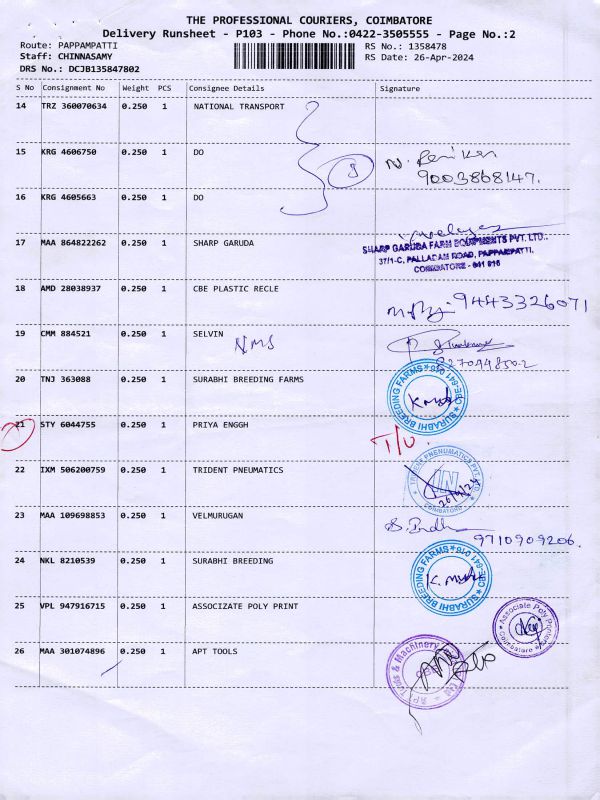 THE PROFESSIONAL COURIERS, COIMBATORE
Delivery Runsheet - P103 - Phone No.:0422-3505555 - Page No.:2
Route: PAPPAMPATTI
RS No.: 1358478
Staff: CHINNASAMY
RS Date: 26-Apr-2024
DRS No.: DCJB135847802
S No Consignment No Weight PCS Consignee Details Signature
14 TRZ 360070634 0.250 1 NATIONAL TRANSPORT
15 KRG 4606750 0.250 1 DO
9003868147.
16 KRG 4605663 0.250 1 DO
17 MAA 864822262 0.250 1 SHARP GARUDA
SHARP GARUDA FARM EQUIPMENTS PVT. LTD.,
37/1-C, PALLADAM ROAD, PAPPAMPATTI,
COIMBATORE - 641 016
18 AMD 28038937 0.250 1 CBE PLASTIC RECLE
9443326071
19 CMM 884521 0.250 1 SELVIN
NMS
20 TNJ 363088 0.250 1 SURABHI BREEDING FARMS
SURABHI BREEDING FARMS * CBE-641 016 *
21 STY 6044755 0.250 1 PRIYA ENGGH
22 IXM 506200759 0.250 1 TRIDENT PNEUMATICS
TRIDENT PNEUMATICS PVT LTD
COIMBATORE
26/4/24
23 MAA 109698853 0.250 1 VELMURUGAN
9710909206.
24 NKL 8210539 0.250 1 SURABHI BREEDING
SURABHI BREEDING FARMS * CBE-641 016 *
25 VPL 947916715 0.250 1 ASSOCIZATE POLY PRINT
Associate Poly Printers
Coimbatore
26 MAA 301074896 0.250 1 APT TOOLS
APT Tools & Machinery